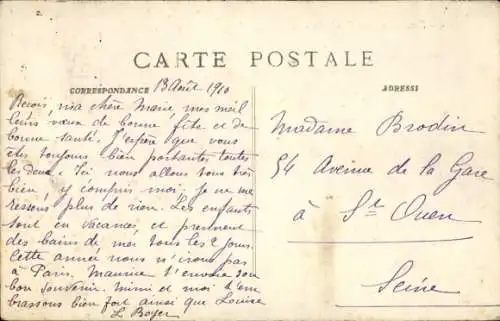 CARTE POSTALE
CORRESPONDANCE
ADRESSE
13 Août 1910
Reçois, ma chère Marie, mes meil
leurs vœux de bonne fête et de
bonne santé. J'espère que vous
êtes toujours bien portantes toutes
les deux. Ici nous allons tous très
bien, y compris moi. Je ne me
ressens plus de rien. Les enfants
sont en vacances, et prennent
des bains de mer tous les 2 jours.
Cette année nous n'irons pas
à Paris. Maurice t'envoie son
bon souvenir. Mimi et moi t'em
brassons bien fort ainsi que Louise
L Boyer
Madame Brodin
54 Avenue de la Gare
à St Ouen
Seine